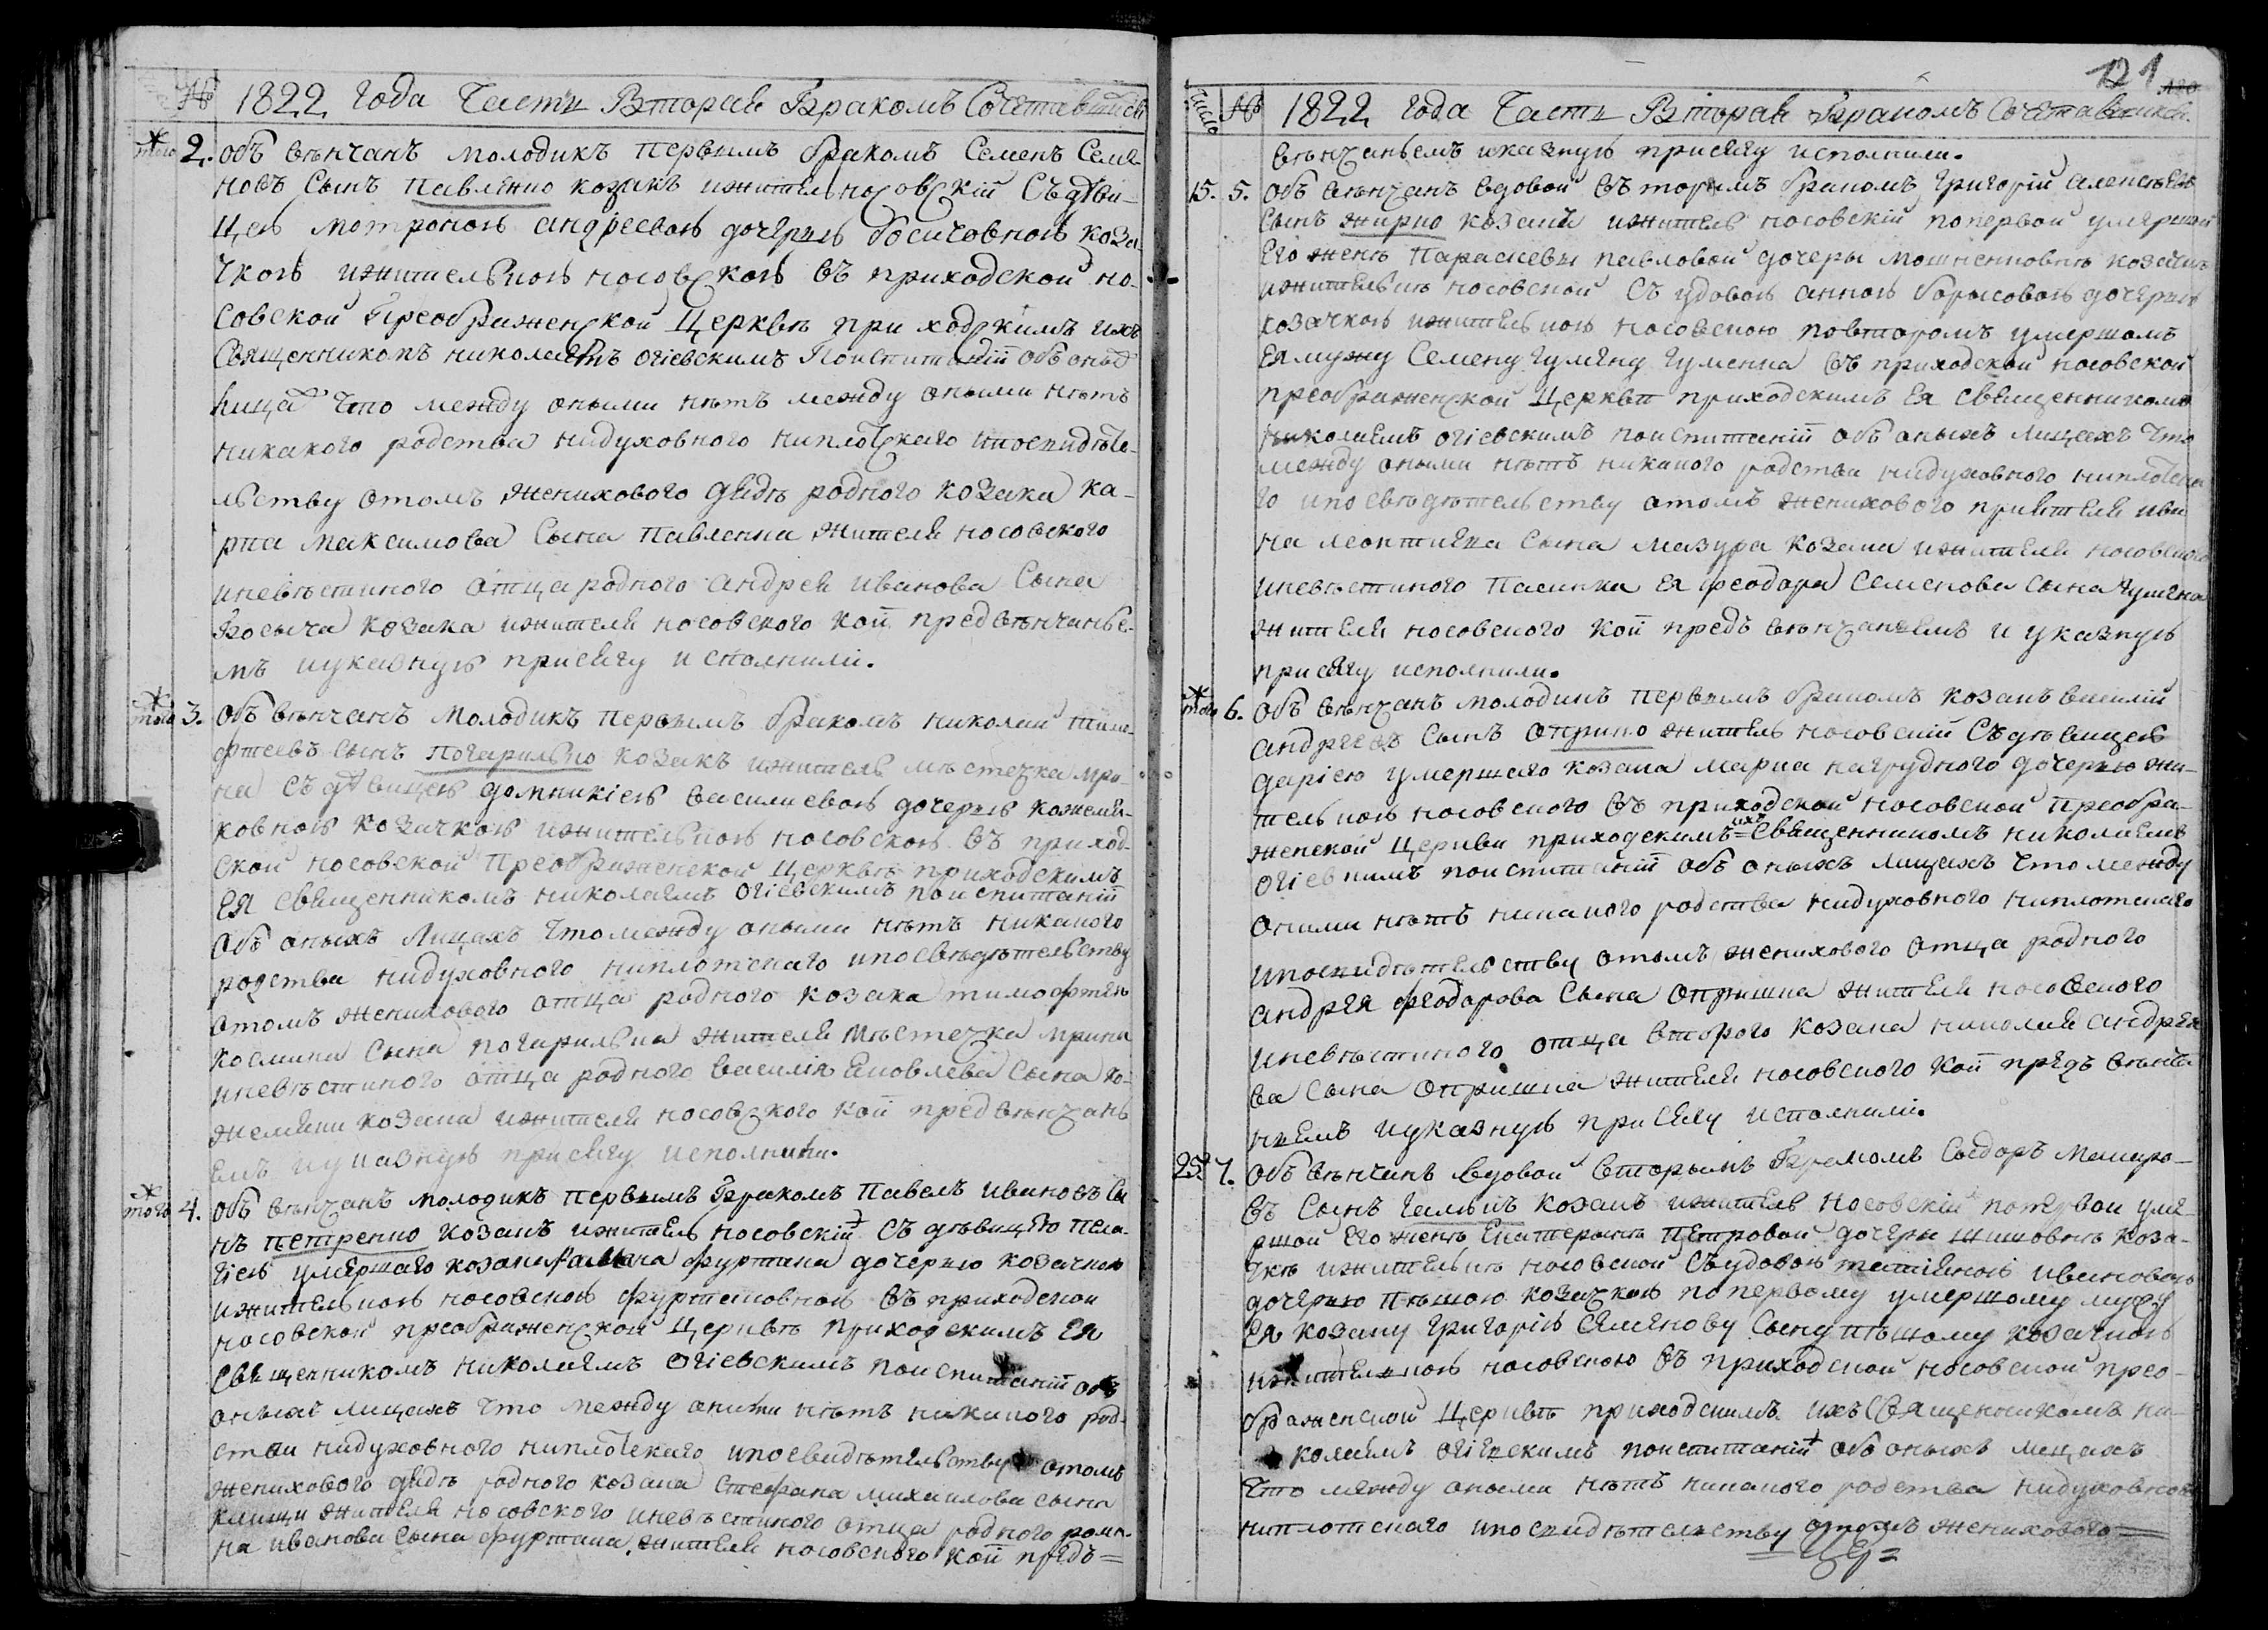 № 1822 года Часть Вторая Бракомъ Сочетавшися
того 2. объ вѣнчанъ молодикъ первымъ бракомъ Семенъ Семе-
новъ Сынъ павленко козакъ ижитель носовскій Съдѣви-
цею мотроною андреевою дочерью босичовною коза-
чкою ижительною носовскою въ приходской но-
совской Преображенской Церквѣ приходскимъ ихъ
Священникомъ николаемъ огіевскимъ Поиспитаній обоныхъ
лицахъ что между оными нѣтъ между оными нѣтъ
никакого родства нидуховного ниплотскаго ипосвидѣте-
льству отомъ женихового дядѣ родного козака ка-
рпа максимова Сына павленка жителя носовского
иневѣстиного отца родного андрея иванова Сына
Босыча козака ижителя носовского кои предвѣнчанье-
мъ иуказную присягу исполнили.
того 3. объ вѣнчанъ молодикъ первымъ бракомъ николай тимо-
фтеевъ сынъ погарилько козакъ ижитель мѣстечка мри-
на Съдѣвицею домникіею василиевою дочерью кожемя-
ковною козачкою ижительною носовскою въ приход-
ской носовской Преображенской Церквѣ приходскимъ
Ея священникомъ николаемъ огіевскимъ поиспитаній
объ оныхъ лицахъ что между оными нѣтъ никакого
родства нидуховного ниплотскаго ипосвѣдѣтельству
отомъ женихового отца родного козака тимофтея
космина Сына погарилька жителя мѣстечка мрина
иневѣстиного отца родного василія яковлева Сына ко-
жемяки козака ижителя носовского кои предвѣнчань
емъ иуказную присягу исполнили.
того 4. объ вѣнчанъ молодикъ первымъ бракомъ павелъ ивановъ Сы
нъ петренко козакъ ижитель носовскій Съ дѣвицею пела-
гіею умершаго козака романа фуртана дочерью козачкою
ижительною носовскою фуртановною въ приходской
носовской преображенской церквѣ приходскимъ Ея
священникомъ николаемъ огіевскимъ поиспитаній объ
оныхъ лицахъ что между оными нѣтъ никакого род-
ства нидуховного ниплотскаго ипосвидѣтельству отомъ
женихового дядѣ родного козака Стефана михаилова сына
жителя носовского иневѣстиного отца родного рома-
на иванова сына фуртана жителя носовского кои предъ=
121
Число № 1822 года Часть Вторая Бракомъ Сочетавшихся
вѣнчаньемъ иказную присягу исполнили.
15. 5. объ вѣнчанъ вдовой въторымъ бракомъ григорій алексѣевъ
сынъ жирко козакъ ижитель носовскій попервой умершей
Его женѣ Параскевы павловой дочеры мошненковнѣ козачкѣ
ижительнѣ носовской Съ удовою анною борисовою дочерью
козачкою ижительною носовскою повторомъ умершомъ
Ея мужу Семену гуляну гуменна въ приходской носовской
преображенской Церквѣ приходскимъ Ея священникомъ
николаемъ огіевскимъ поиспитаній объ оныхъ лицахъ что
между оными нѣтъ никакого родства нидуховного ниплотска
го ипосвѣдѣтельству отомъ женихового пріятеля ива
на леонтиева сына мазура козака ижителя носовского
иневѣстиного пасинка Ея феодора Семенова сына
жителя носовского кои предъ вѣнчаньемъ и указную
присягу исполнили.
того 6. объ вѣнчанъ молодикъ первымъ бракомъ козакъ василій
андреевъ Сынъ опришко житель носовскій Съдѣвицею
даріею умершаго козака марка нагрудного дочерью жи-
тельною носовского въ приходской носовской преобра-
женской церкви приходскимъ ихъ Священникомъ николаемъ
огіевскимъ поиспитаній объ оныхъ лицахъ что между
оними нѣтъ никакого родства нидуховного ниплотскаго
ипосвидѣтельству отомъ женихового отца родного
андрея феодорова Сына опришка жителя носовского
иневѣстиного отца второго козака николая андрее
ва сына опришка жителя носовского кои предъ вѣнча
ньемъ иуказную присягу исполнили.
25. 7. объ вѣнчанъ вдовой вторымъ Бракомъ Сыдоръ
въ Сынъ козакъ ижитель носовскій попервой уме-
ршой Его женѣ Екатеринѣ Петровой дочеры шишовнѣ коза-
чкѣ ижительнѣ носовской Съудовою татіяною ивановою
дочерью пѣшою козачкою попервому умершому мужу
Ея козаку григорію Семенову Сыну пѣшому козачкою
ижительною носовскою въ приходской носовской прео-
браженской церквѣ приходскимъ ихъ Священникомъ ни-
колаемъ огіевскимъ поиспитаній объ оныхъ лицахъ
Что между оными нѣтъ никакого родства нидуховного
ниплотскаго ипосвидѣтельству отомъ женихового